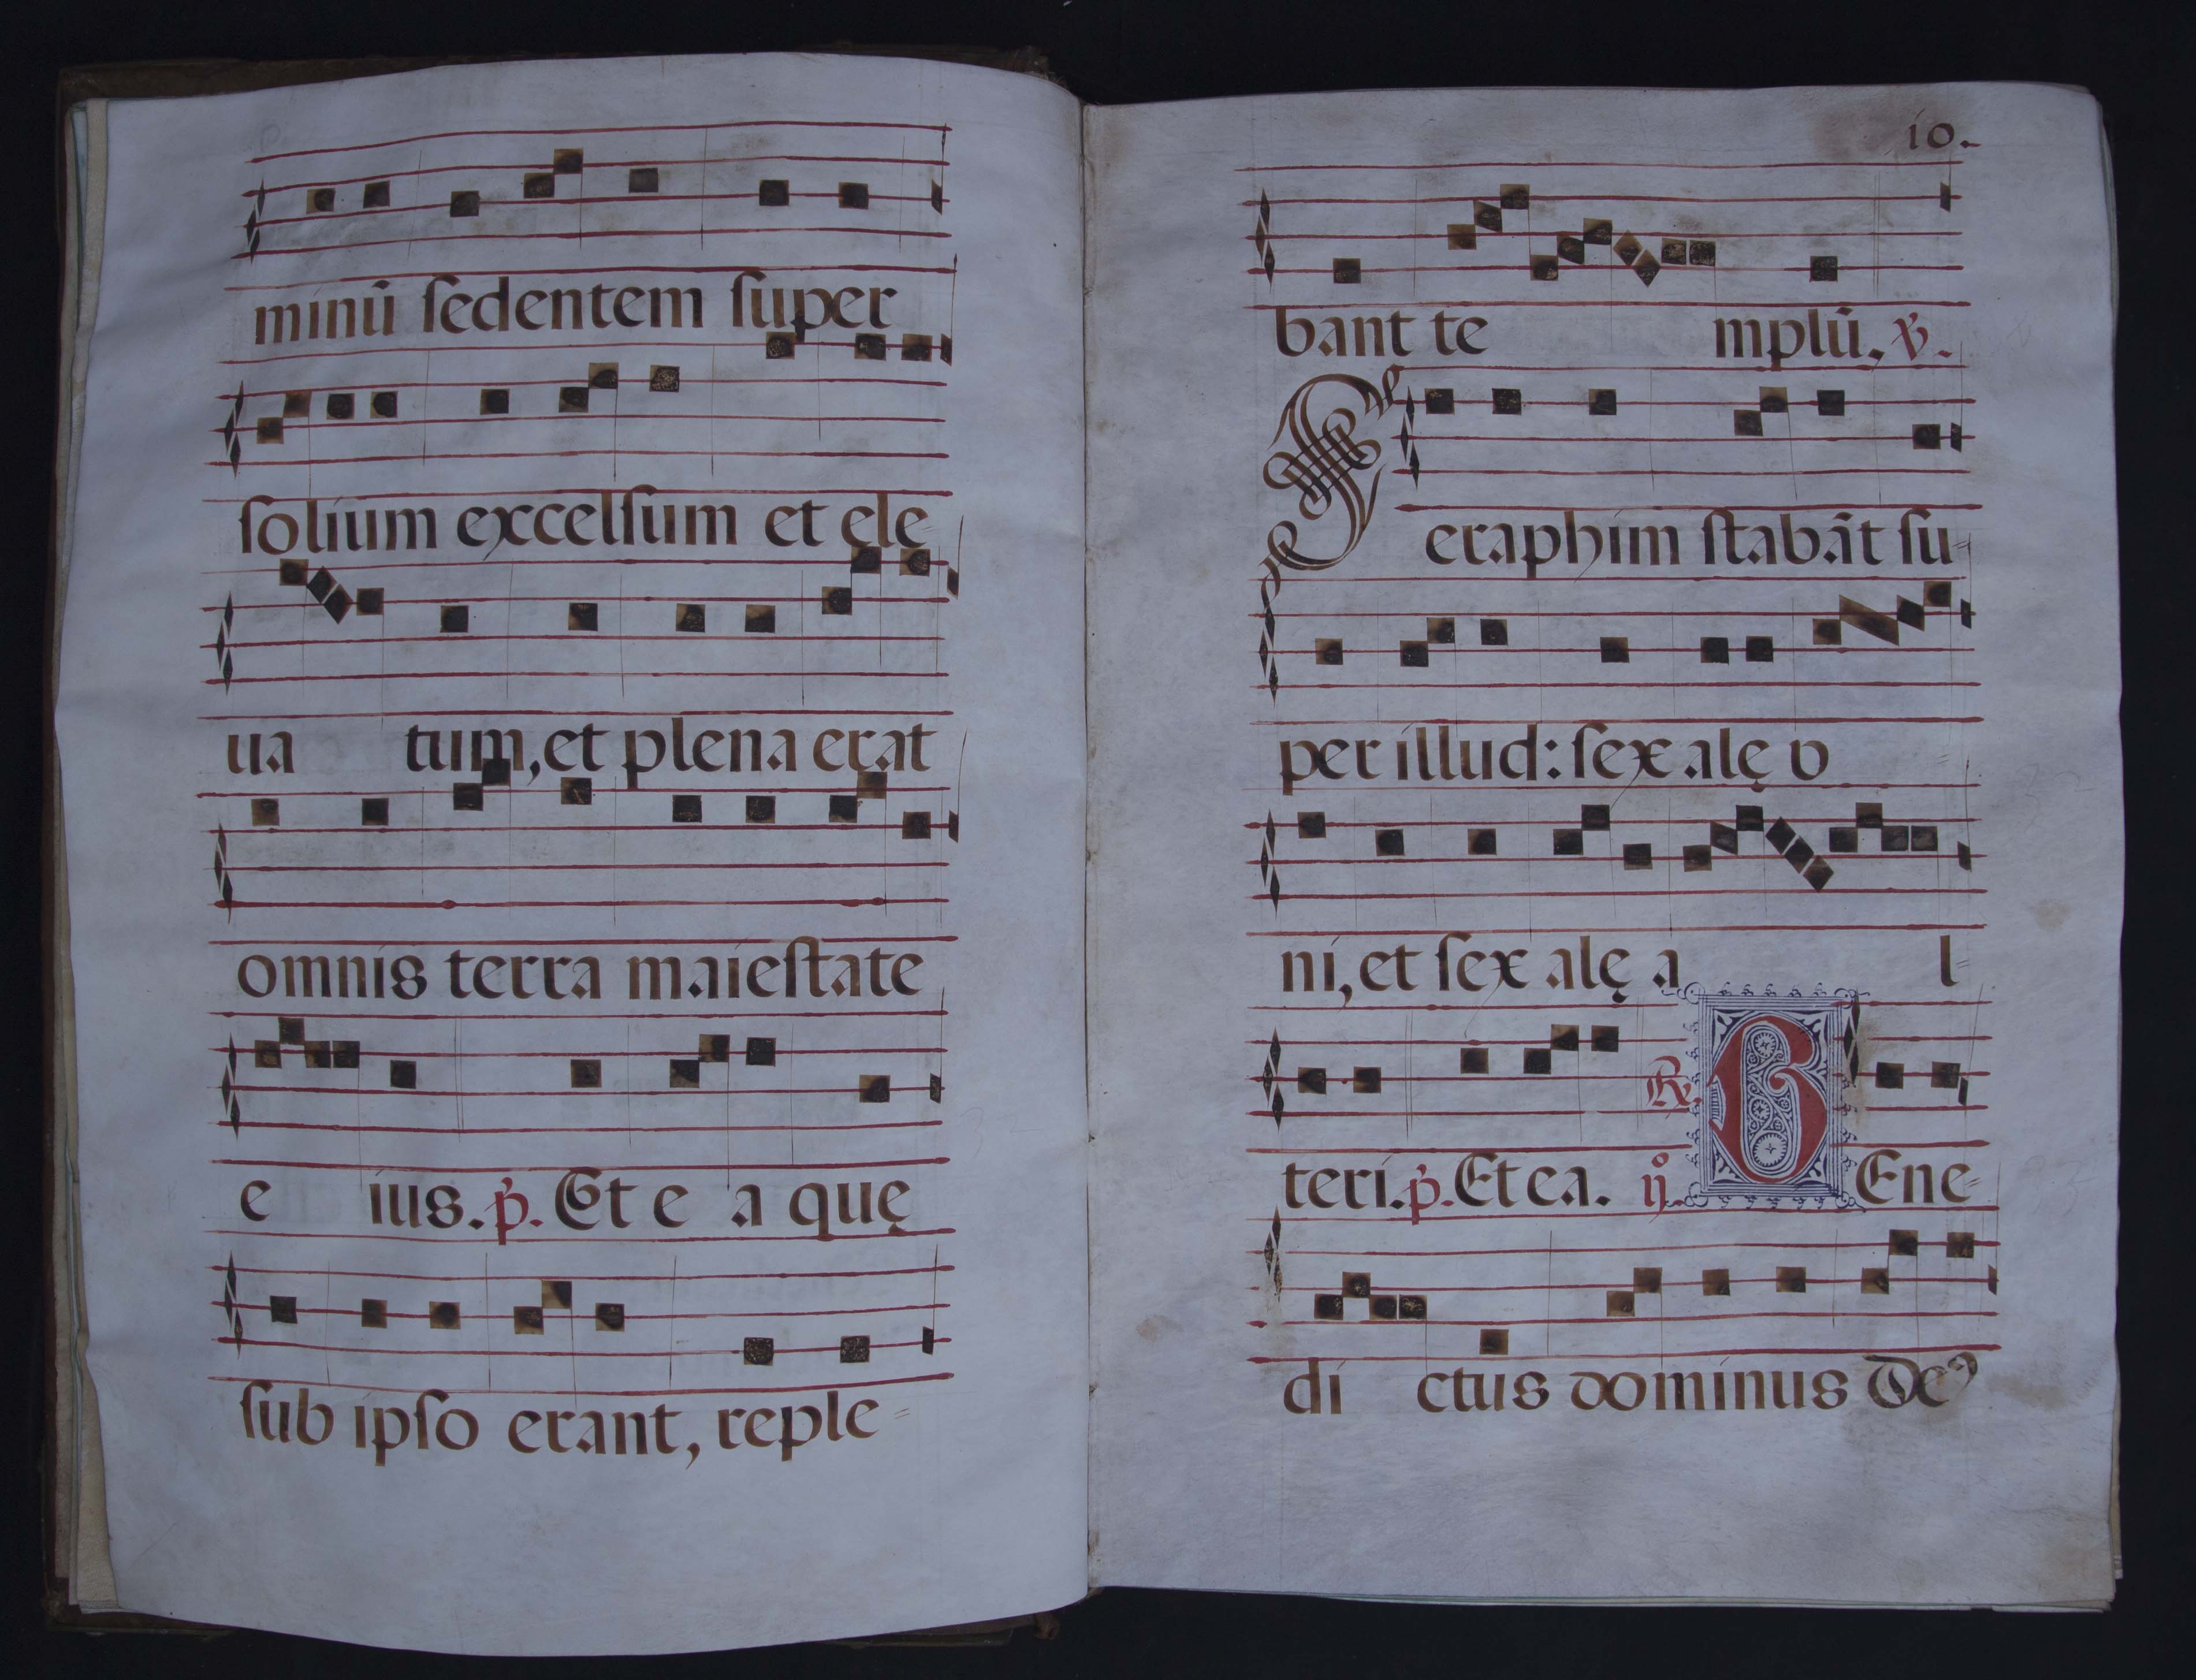 minū ſedentem ſuper
ſolium excelſum et ele
ua tum, et plena erat
omnis terra maieſtate
e ius. p̄. Et e a quę
ſub ipſo erant, reple=
10.
bant te mplū. ℣.
Seraphim ſtabāt ſu=
per illud: ſex alę v
ni, et ſex alę a l=
teri. p̄. Et ea. ℟. ij.º BEne=
di ctus dominus Deꝰ